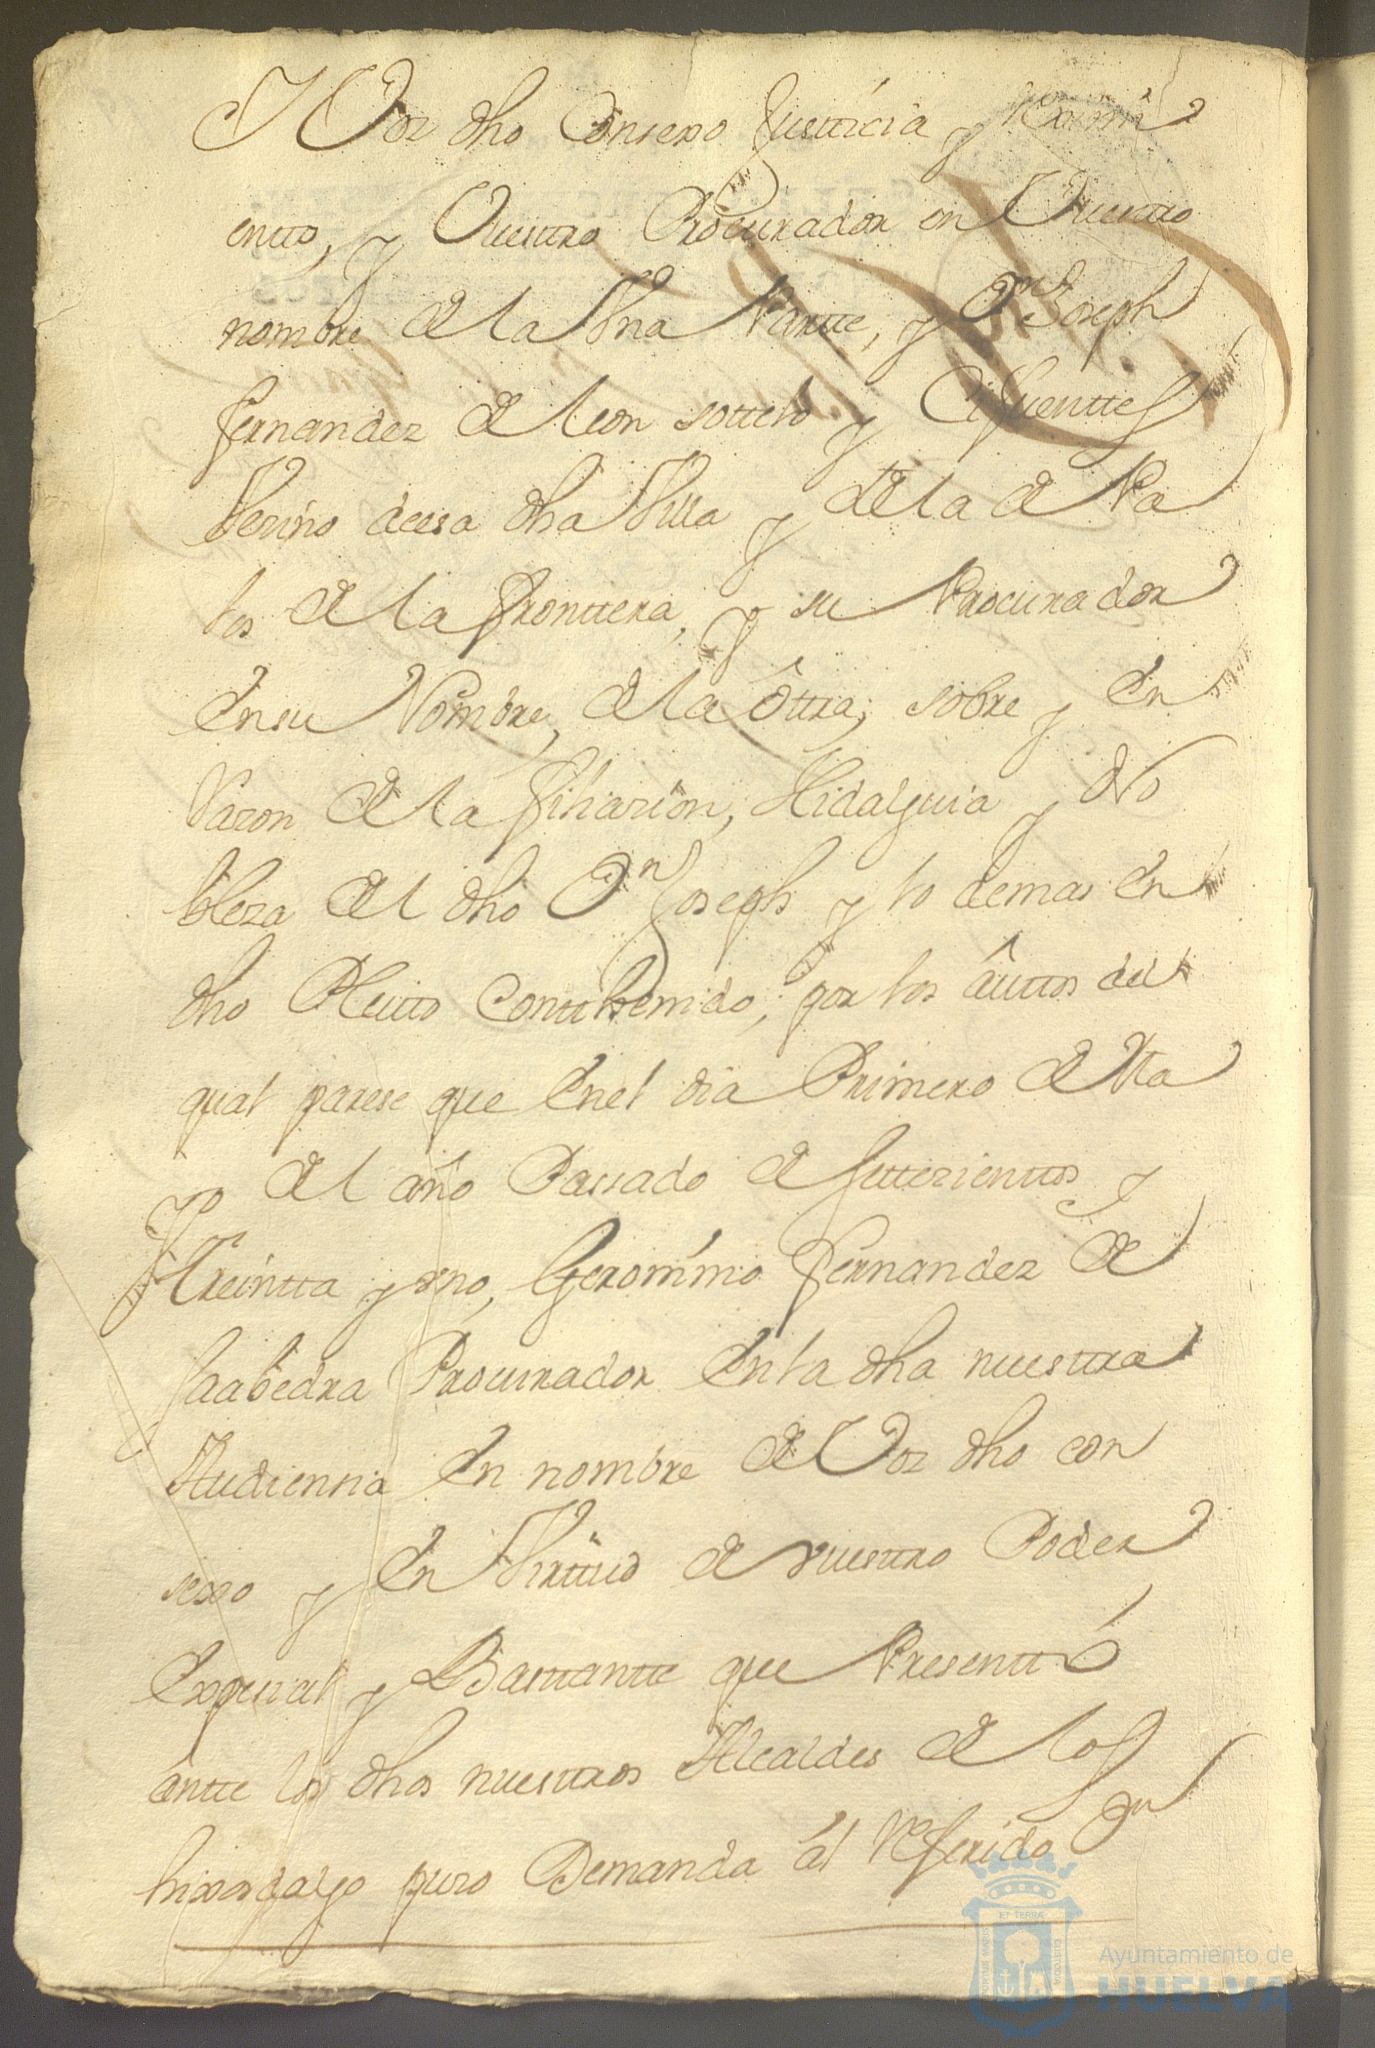 Y Vos dho Consexo Justticia y Reximi
entto, y Vuesttro Procurador en Vuesttro
nombre de la Vna Partte, y Dn Joseph
fernandez de leon sottelo y Cifuenttes
Vezino de esa dha Villa y de la de Pa
los de la fronttera, y su Procurador
en su Nombre, de la ôttra, sobre y en
Razon de la filiazion, Hidalguia y No
bleza del dho Dn Joseph y lo demas en
dho Pleitto Conttthenido, por los âuttos del
qual parese que en el dia Primero de Ma
yo del año Passado de settezienttos y
Treintta y vno, Geronimo Fernandez de
saabedra Procurador en la dha nuesttra
Audiensia en nombre de Vos dho con
sexo y en Virttud de vuesttro Poder
Expesial y Basttantte que Presenttó
ântte los dhos nuesttros Alcaldes de los
hixosdalgo puso Demanda âl Referido Dn
Ayuntamiento de
HUELVA